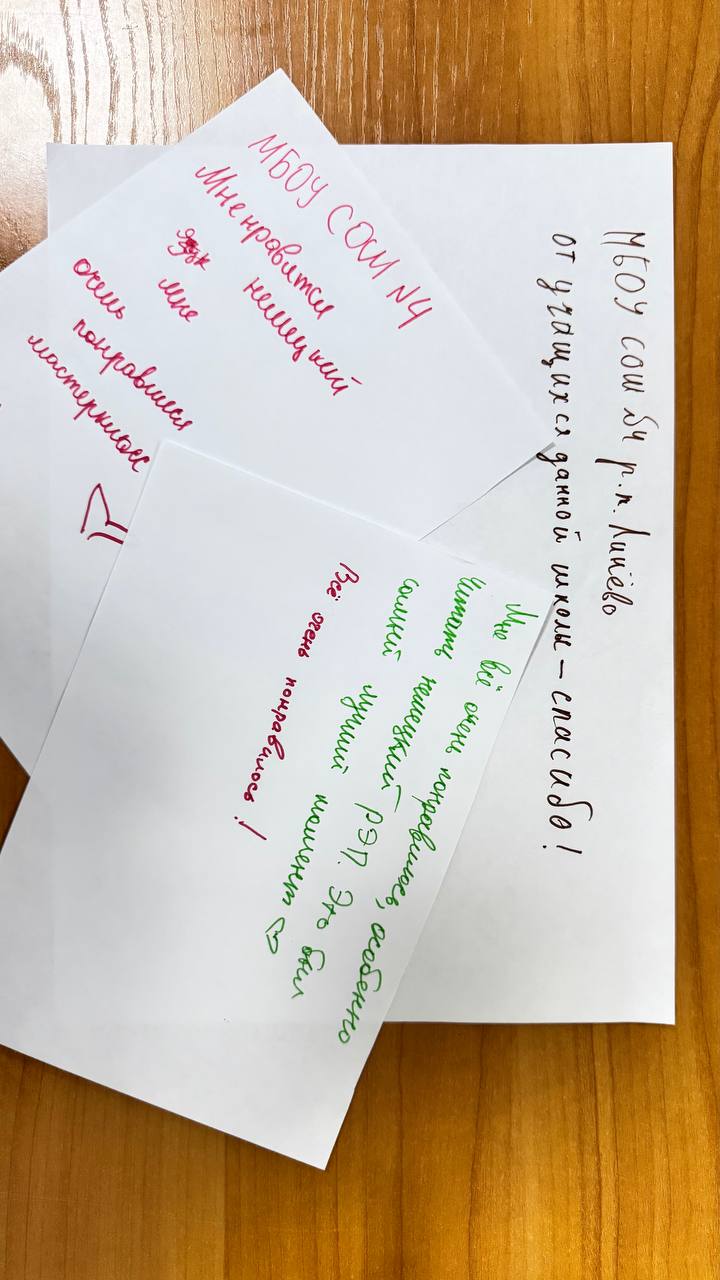 МБОУ СОШ №4 р.п. Линёво
от учащихся данной школы – спасибо!
МБОУ СОШ №4
Мне нравится
немецкий
язык
мне
очень
понравился
мастеркласс
Мне всё очень понравилось, особенно
читать немецкий РЭП. Это был
самый лучший момент
Всё очень понравилось!